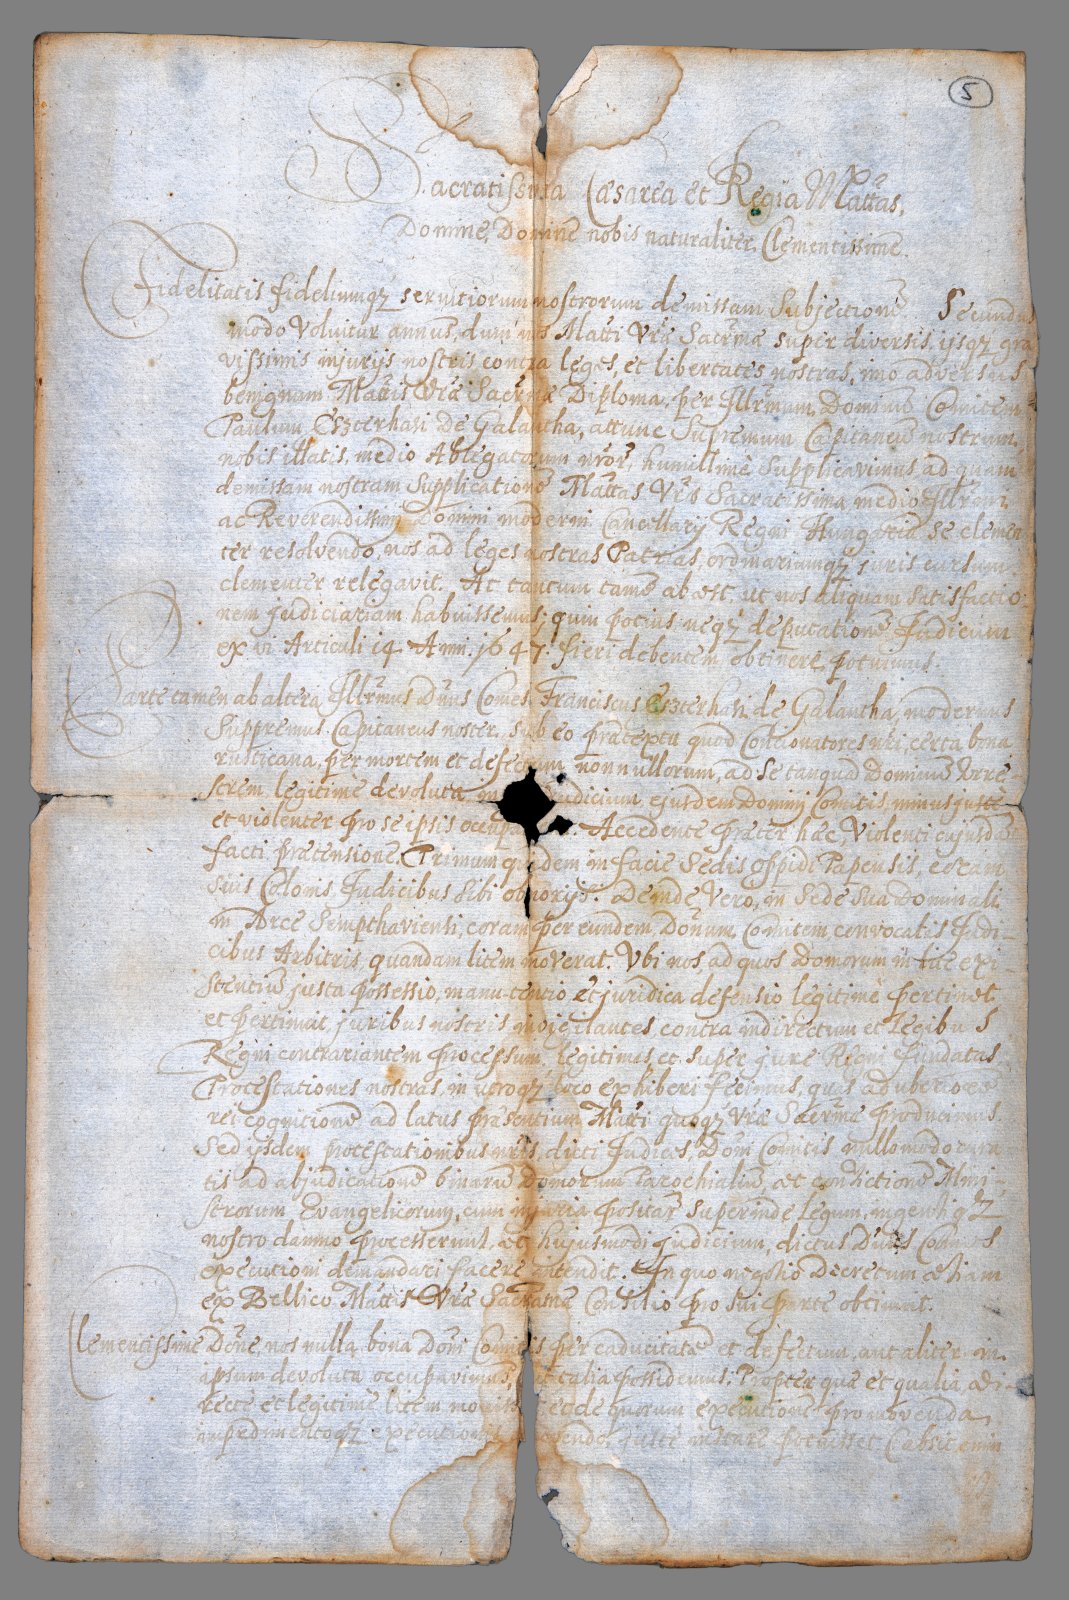 5
Sacratissima Cæsarea et Regia Mattas,
Domine, Domine nobis naturaliter Clementissime.
Fidelitatis fideliumqz servitiorum nostrorum demissam Subjectione Secundus
modo Volvitur annus, dum nos Matti Vrae Sacrmae super diversis, ijsqz gra
vissimis injurijs nostris contra leges, et libertates nostras, imo adversus
benignum Mattis Vrae Sacrmae Diploma, per Illrmum Dominu Comitem
Paulum Eszterhasi de Galantha, attunc Supremum Capitaneu nostrum,
nobis illatis, medio Ablegatorum nror, humillime supplicavimus ad quam
demissam nostram Supplicatione Mattas Vra Sacratissima, medio Illrmi
ac Reverendissimi Domini moderni Cancellarij Regni Hungariæ se clemen
ter resolvendo, nos ad leges nostras Patrias, ordinariumqz juris cursum
clementer relegavit. At tantum tame abest, ut nos aliquam satisfactio
nem judiciariam habuissemus; quin potius neqz deputatione Judicum
ex vi Articuli 14 Anni 1647. fieri debentem obtinere potuimus.
Parte tamen ab altera Illrmus Dnus Comes Franciscus Eszterhasi de Galantha, modernus
Suppremus Capitaneus noster, sub eo prætextu quod Concionatores nri, certa bona
rusticana, per mortem et defectum nonnullorum, ad se tanquã Dominum Terre-
strem legitime devoluta, in judicium ejusdem Domini Comitis, minus juste
et violenter pro se ipsis Accedente præter hæc, Violenti cujusdã
facti prætensione. Primum quidem in facie Sedis oppidi Papensis, coram
suis Colonis Judicibus sibi obnoxijs. Deinde Vero, in Sede sua Dominali
in Arce Sempthaviensi, coram per eundem Donum Comitem convocatis Judi-
cibus Arbitris, quandam litem moverat. Ubi nos ad quos Domorum in lite exi-
stentiu justa possessio, manu-tentio et juridica defensio legitime pertinet
et pertinuit, juribus nostris invigilantes, contra indirectum et Legibus
Regni contrariantem processum, legitimas, et super jure Regni fundatas
Protestationes nostras, in utroqz loco exhiberi fecimus, quas ad uberiore
rei cognitione ad latus præsentium Matti quoqz Vrae Sacrmae producimus.
Sed ijsdem protestationibus nris, dicti Judices, Dom Comitis nullomodo cura-
tis ad abjudicatione binaru Domorum Parochialiu, ac convictione Mini-
strorum Evangelicorum, cum injuria positar superinde legum, ingentiqz
nostro damno processerunt, ac hujusmodi judicium, dictus Dnus Comes
executioni demandari facere intendit. In quo negotio Decretum etiam
ex Bellico Mattis Vrae Sacratmae Consilio pro sui parte obtinuit.
Clementissime Dne, nos nulla bona Domi Comitis per caducitate et defectum, aut aliter in
ipsum devoluta occupavimus, aut talia possidemus. Propter quæ et qualia, di-
recte et legitime litem movisse et de quorum executione promovenda,
impedimentoqz executionis juste potuisset Cabsit enim